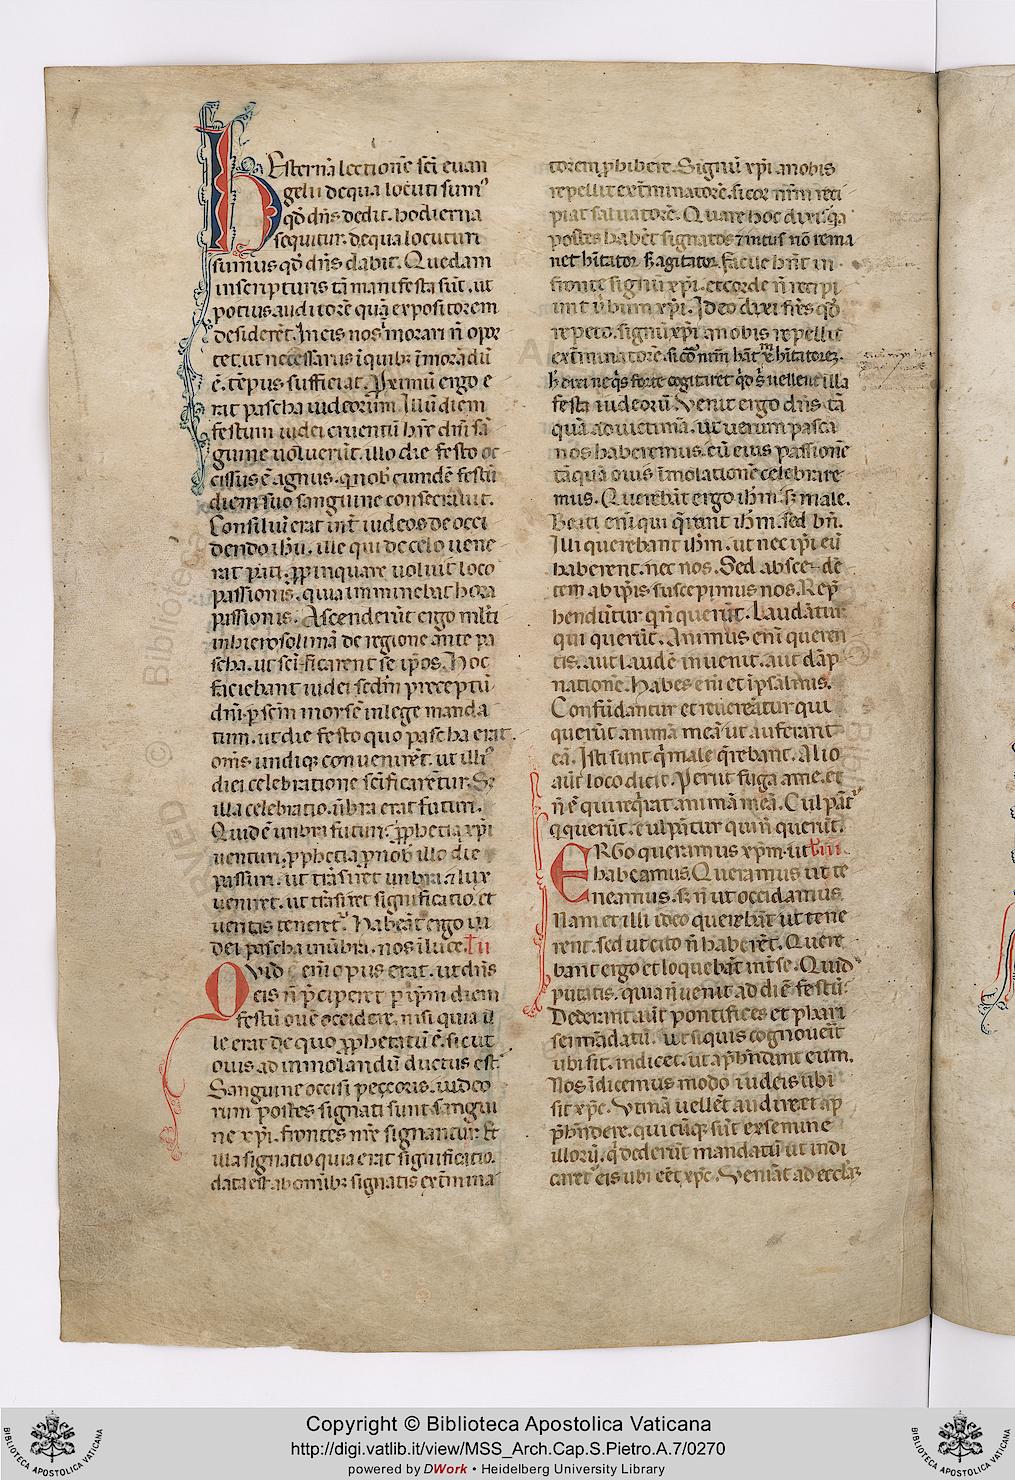 Esterna lectione sci euan
gelii de qua locuti sumꝰ
qd dns dedit. hodierna
sequitur. de qua locuturi
sumus qd dns dabit. Quedam
in scripturis ta manifesta sut. ut
potius auditore qua expositorem
desideret. In eis nos morari n opor
tet. ut necessariis i quibꝫ imoradu
e. tepus sufficiat. Proximu ergo e
rat pascha iudeorum. Illu diem
festum iudei cruentu hre dni sa
guine uoluerut. illo die festo oc
cissus e agnus. q nob eumde festu
diem suo sanguine consecrauit.
Consiliu erat int iudeos de occi
dendo ihu. ille qui de celo uene
rat pati. ꝓpinquare uoluit loco
passionis. quia imminebat hora
passionis. Ascenderut ergo mlti
in hierosolima de regione ante pa
scha. ut sci ficarent se ipos. Hoc
faciebant iudei sedm preceptu
dni. p scm morse in lege manda
tum. ut die festo quo pascha erat.
oms undiqꝫ conueniret. ut illiꝰ
diei celebratione scificaretur. Sꝫ
illa celebratio. ubra erat futuri.
Quid e umbra futuri. ꝓphetia xpi
uenturi. ꝓphetia ꝓ nob illo die
passuri. ut trasiret umbra ⁊ lux
ueniret. ut trasiret significatio. et
ueritas teneret. Habeat ergo iu
dei pascha in ubra. nos i luce. l ii
Quid eni opus erat. ut dns
eis n pciperet p ipm diem
festu oue occidere. nisi quia il
le erat de quo ꝓphetatu e. sicut
ouis ad inmolandu ductus est.
Sanguine occisi peccoris. iudeo
rum postes signati sunt. sangui
ne xpi. frontes nre signantur. Et
illa signatio quia erat significatio.
data est ab omibꝫ signatis extmina
torem phibere. Signu xpi a nobis
repellit exterminatore. si cor nrm reci
piat saluatore. Quare hoc dixi. qa
postes habet signatos ⁊ intus no rema
net hitator sꝫ agitator. facile hnt in
fronte signu xpi. et corde n recipi
unt ubum xpi. Ideo dixi frs qd
repeto. signu xpi a nobis repellit
extminatore. si cor nrm hat xpm hitatorez.
hoc dixi ne qs forte cogitaret qd s uellent illa
festa iudeoru. Venit ergo dns ta
qua ad uictima. ut uerum pasca
nos haberemus. cu eius passione
taqua ouis imolatione celebrare
mus. Querebat ergo ihm. sꝫ male.
Beati eni qui qrunt ihm. sed bn.
Illi querebant ihm. ut nec ipi eu
haberent. nec nos. Sed absce de
tem ab ipis suscepimus nos. Rep
henduntur qn querut. Laudatur
qui querut. Animus eni queren
tis. aut laude inuenit. aut dap
natione. Habes eni et i psalmis.
Confudantur et reuereatur qui
querut anima mea ut auferant
ea. Isti sunt q male qrebant. Alio
aut loco dicit. Periit fuga a me. et
n e qui reqrat anima mea. Culpat
q querut. culpatur qui n querut.
ERGo queramus xpm. ut l iii
habeamus. Queramus ut te
neamus. sꝫ n ut occidamus.
Nam et illi ideo querebat ut tene
rent. sed ut cito n haberet. Quere
bant ergo et loquebat int se. Quid
putatis. quia n uenit ad die festu.
Dederunt aut pontifices et phari
sei madatu. ut siquis cognouerit
ubi sit. indicet. ut aphendant eum.
Nos i dicemus modo iudeis ubi
sit xpc. Vtina uellet audire et ap
phendere. quicuqꝫ sut ex semine
illoru. q dederut mandatu ut indi
caretꝰ eis ubi eet xpc. Veniat ad eccla
Copyright © Biblioteca Apostolica Vaticana
http://digi.vatlib.it/view/MSS_Arch.Cap.S.Pietro.A.7/0270
powered by DWork • Heidelberg University Library
BIBLIOTECA APOSTOLICA VATICANA
BIBLIOTECA APOSTOLICA VATICANA